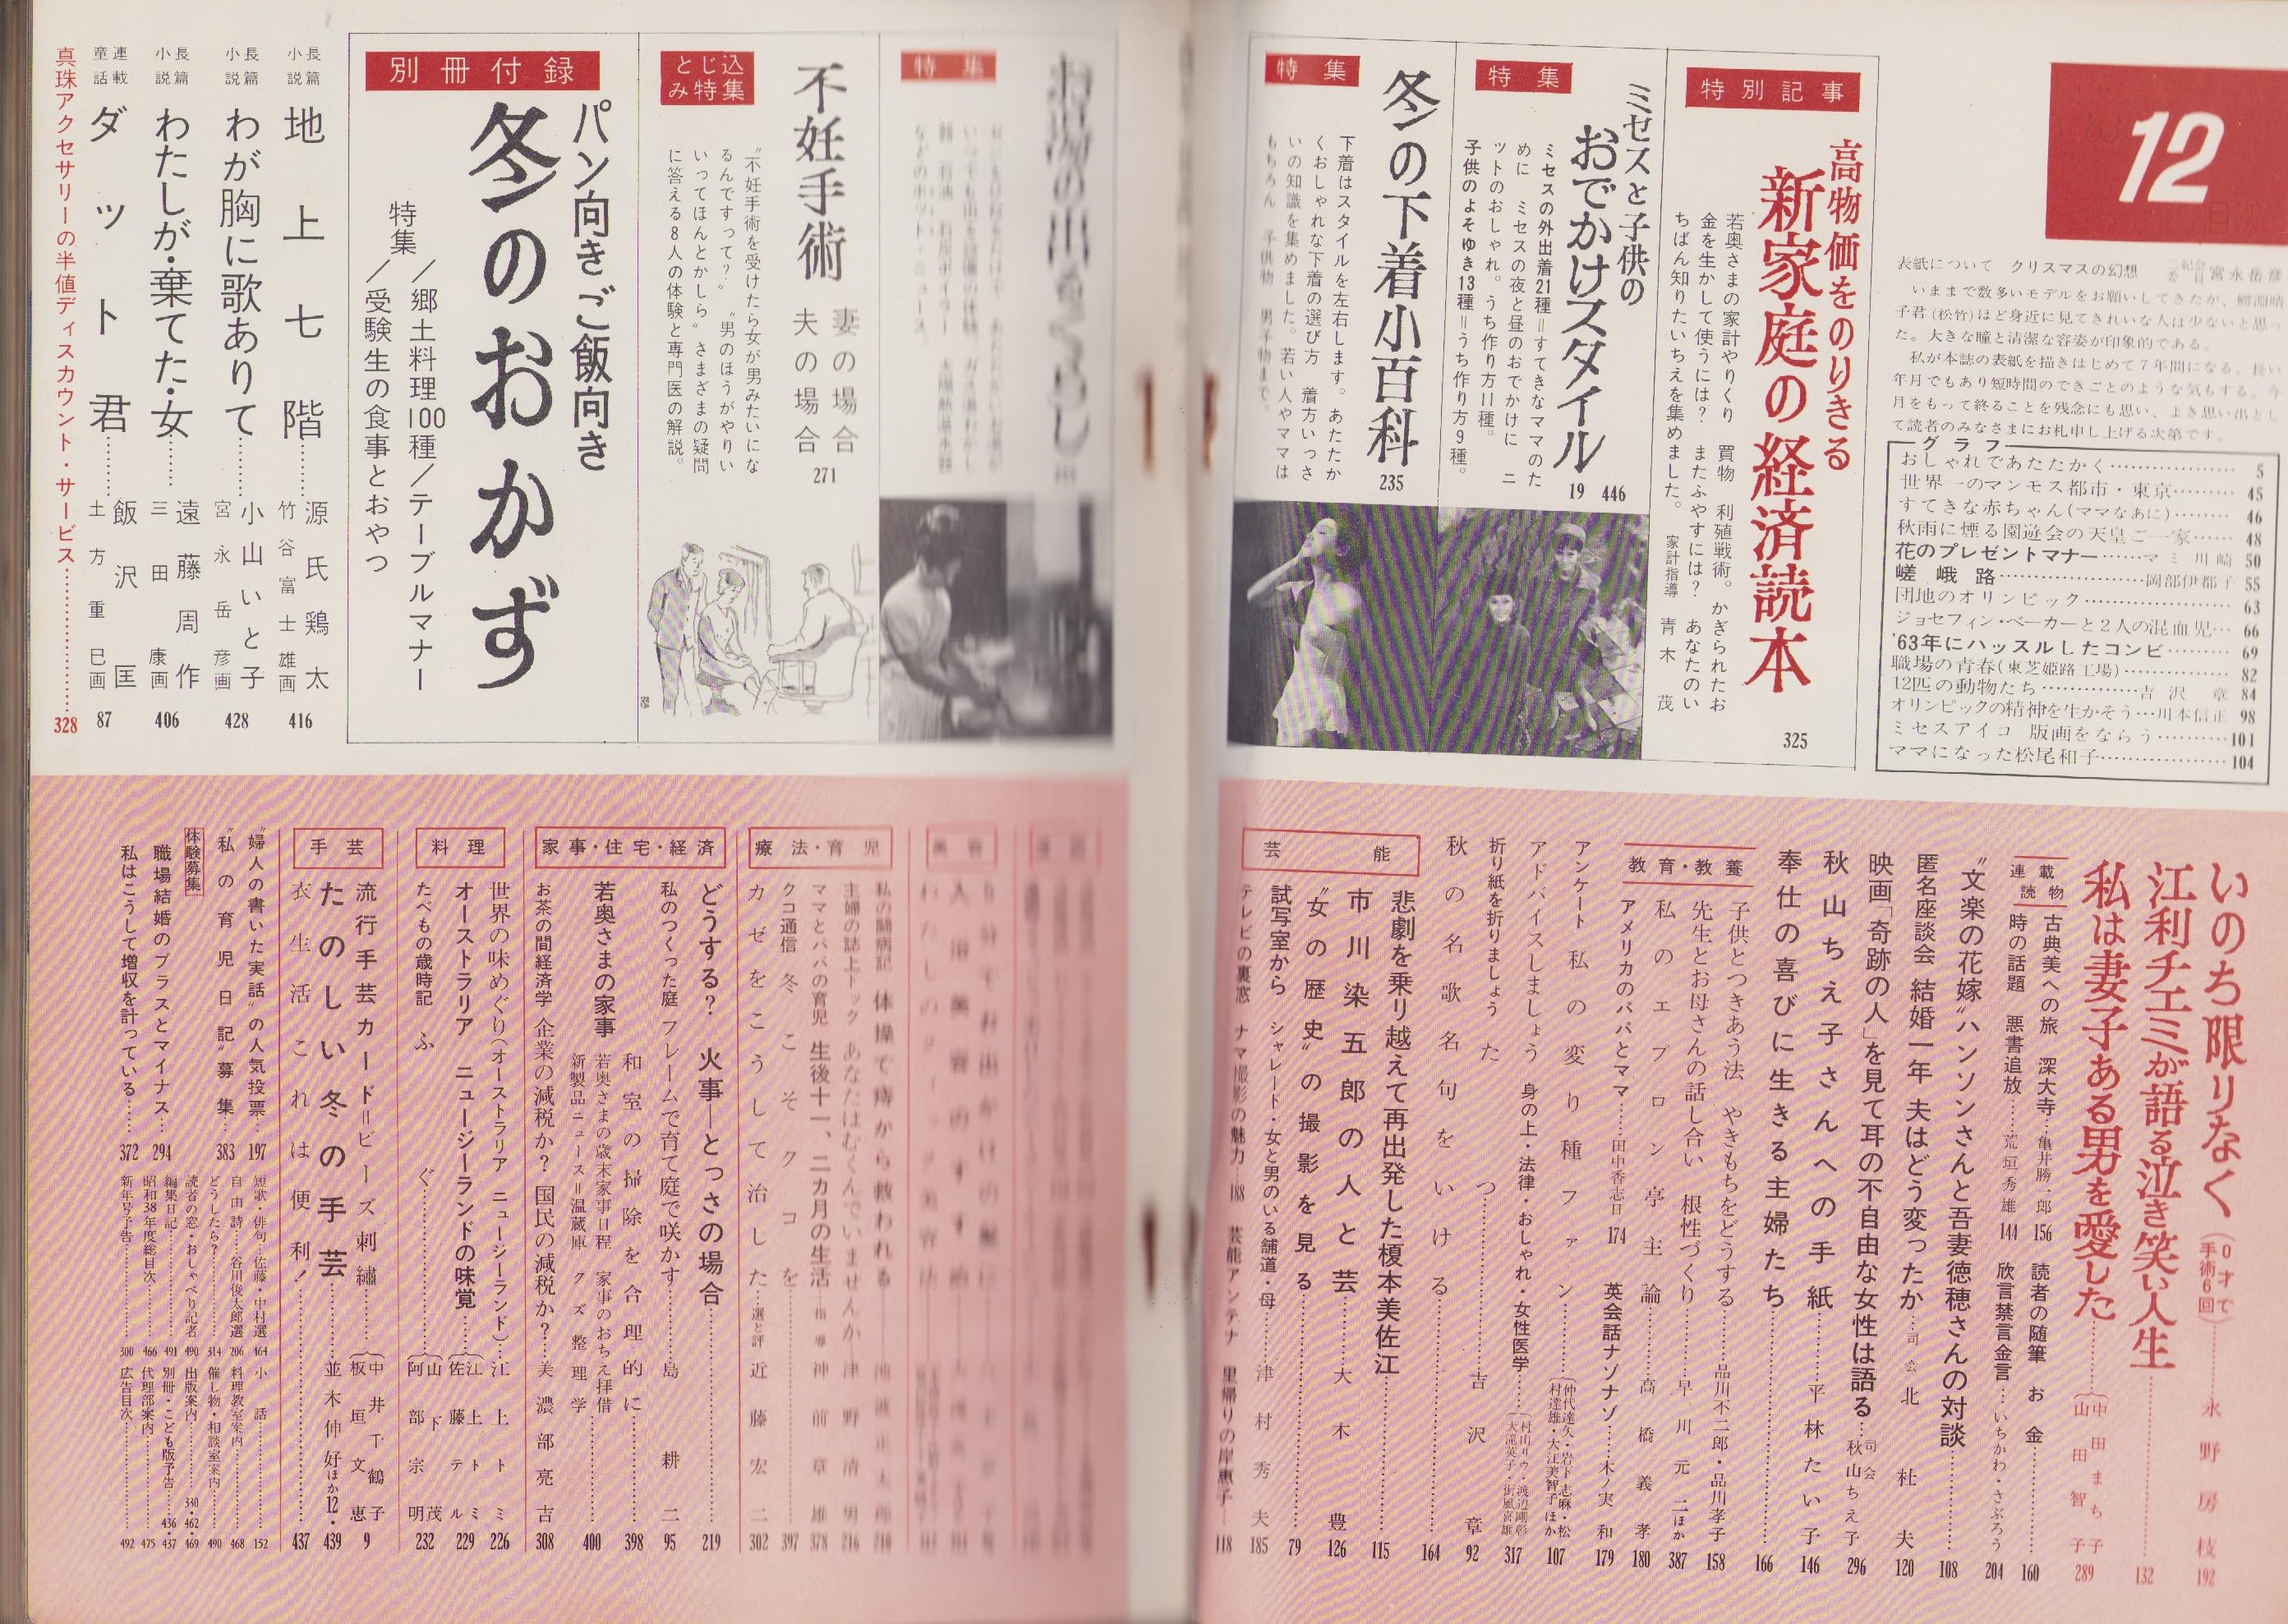 12
表紙について クリスマスの幻想
富永岳彦
いままで数多いモデルをお願いしてきたが、鰐淵晴
子君(松竹)ほど身近に見てきれいな人は少ないと思っ
た。大きな瞳と清潔な容姿が印象的である。
私が本誌の表紙を描きはじめて7年間になる。長い
年月でもあり短時間のできごとのような気もする。今
月をもって終ることを残念にも思い、よき思い出とし
て読者のみなさまにお礼申し上げる次第です。
グラフ
おしゃれであたたかく 5
世界一のマンモス都市・東京 45
すてきな赤ちゃん(ママなあに) 46
秋雨に煙る園遊会の天皇ご一家 48
花のプレゼントマナー マミ川崎 50
嵯峨路 岡部伊都子 55
団地のオリンピック 63
ジョセフィン・ベーカーと2人の混血児 66
'63年にハッスルしたコンビ 69
職場の青春(東芝姫路工場) 82
12匹の動物たち 吉沢章 84
オリンピックの精神を生かそう 川本信正 98
ミセスアイコ 版画をならう 101
ママになった松尾和子 104
特別記事
高物価をのりきる
新家庭の経済読本
325
若奥さまの家計やりくり 買物 利殖戦術。かぎられたお
金を生かして使うには? またふやすには? あなたのい
ちばん知りたいちえを集めました。 家計指導 青木茂
特集
ミセスと子供の
おでかけスタイル
19 446
ミセスの外出着21種=すてきなママのた
めに ミセスの夜と昼のおでかけに ニ
ットのおしゃれ。うち作り方11種。
子供のよそゆき13種=うち作り方9種。
特集
冬の下着小百科
235
下着はスタイルを左右します。あたたか
くおしゃれな下着の選び方 着方いっさ
いの知識を集めました。若い人やママは
もちろん 子供物 男子物まで。
特集
とじ込み特集
不妊手術
妻の場合
夫の場合
271
〝不妊手術を受けたら女が男みたいにな
るんですって?〟〝男のほうがやりい
いってほんとかしら〟さまざまの疑問
に答える8人の体験と専門医の解説。
別冊付録
パン向きご飯向き
冬のおかず
特集
/郷土料理100種/テーブルマナー
/受験生の食事とおやつ
長篇小説 地上七階 源氏鶏太 竹谷富士雄画 416
長篇小説 わが胸に歌ありて 小山いと子 宮永岳彦画 428
長篇小説 わたしが・棄てた・女 遠藤周作 三田康画 406
連載童話 ダット君 飯沢匡 土方重巳画 87
真珠アクセサリーの半値ディスカウント・サービス 328
いのち限りなく (0才で手術6回) 永野房枝 192
江利チエミが語る泣き笑い人生 132
私は妻子ある男を愛した 中田まち子 山田智子 289
連載読物
古典美への旅 深大寺 亀井勝一郎 156
時の話題 悪書追放 荒垣秀雄 144
読者の随筆 お金 160
欣言禁言金言 いちかわ・さぶろう 204
〝文楽の花嫁〟ハンソンさんと吾妻徳穂さんの対談 108
匿名座談会 結婚一年 夫はどう変ったか 司会 北杜夫 120
映画「奇跡の人」を見て耳の不自由な女性は語る 司会 秋山ちえ子 296
秋山ちえ子さんへの手紙 平林たい子 146
奉仕の喜びに生きる主婦たち 166
教育・教養
子供とつきあう法 やきもちをどうする 品川不二郎・品川孝子 158
先生とお母さんの話し合い 根性づくり 早川元二ほか 387
私のエプロン亭主論 高橋義孝 180
アメリカのパパとママ 田中香志日 174
英会話ナゾナゾ 木ノ実和 179
アンケート 私の変り種ファン 仲代達矢・岩下志麻・松村達雄・大江美智子ほか 107
アドバイスしましょう 身の上・法律・おしゃれ・女性医学 317
折り紙を折りましょう たつ 吉沢章 92
秋の名歌名句をいける 164
芸能
悲劇を乗り越えて再出発した榎本美佐江 115
市川染五郎の人と芸 大木豊 126
〝女の歴史〟の撮影を見る 79
試写室から シャレード・女と男のいる舗道・母 津村秀夫 185
テレビの裏窓 ナマ撮影の魅力 188
芸能アンテナ 里帰りの岸恵子 118
療法・育児
私の闘病記 体操で痔から救われる
主婦の誌上ドック あなたはむくんでいませんか 津野清男 216
ママとパパの育児 生後十一、二カ月の生活 指導 神前章雄 378
クコ通信 冬こそクコを 397
カゼをこうして治した 選と評 近藤宏二 302
家事・住宅・経済
どうする? 火事―とっさの場合 219
私のつくった庭 フレームで育て庭で咲かす 島耕二 95
若奥さまの家事
和室の掃除を合理的に 398
若奥さまの歳末家事日程 家事のおちえ拝借
新製品ニュース=温蔵庫 クズ整理学 400
お茶の間経済学 企業の減税か? 国民の減税か? 美濃部亮吉 308
料理
世界の味めぐり(オーストラリア ニュージーランド) 江上トミ 226
オーストラリア ニュージーランドの味覚 江上トミ 佐藤テル 229
たべもの歳時記 ふぐ 山下茂 阿部宗明 232
手芸
流行手芸カード=ビーズ刺繍 中井千鶴子 板垣文恵 9
たのしい冬の手芸 12・439
衣生活これは便利! 並木伸好ほか 437
〝婦人の書いた実話〟の人気投票 197
〝私の育児日記〟募集 383
体験募集
職場結婚のプラスとマイナス 294
私はこうして増収を計っている 372
短歌・俳句 佐藤・中村選 164
自由詩 谷川俊太郎選 206
どうしたら? 314
読者の窓・おしゃべり記者 490
編集日記 491
昭和38年度総目次 466
新年号予告 300
小話 152
料理教室案内 468
催し物・相談室案内 490
出版案内 330・462・469
別冊・こども版予告 436・437
代理部案内 475
広告目次 492